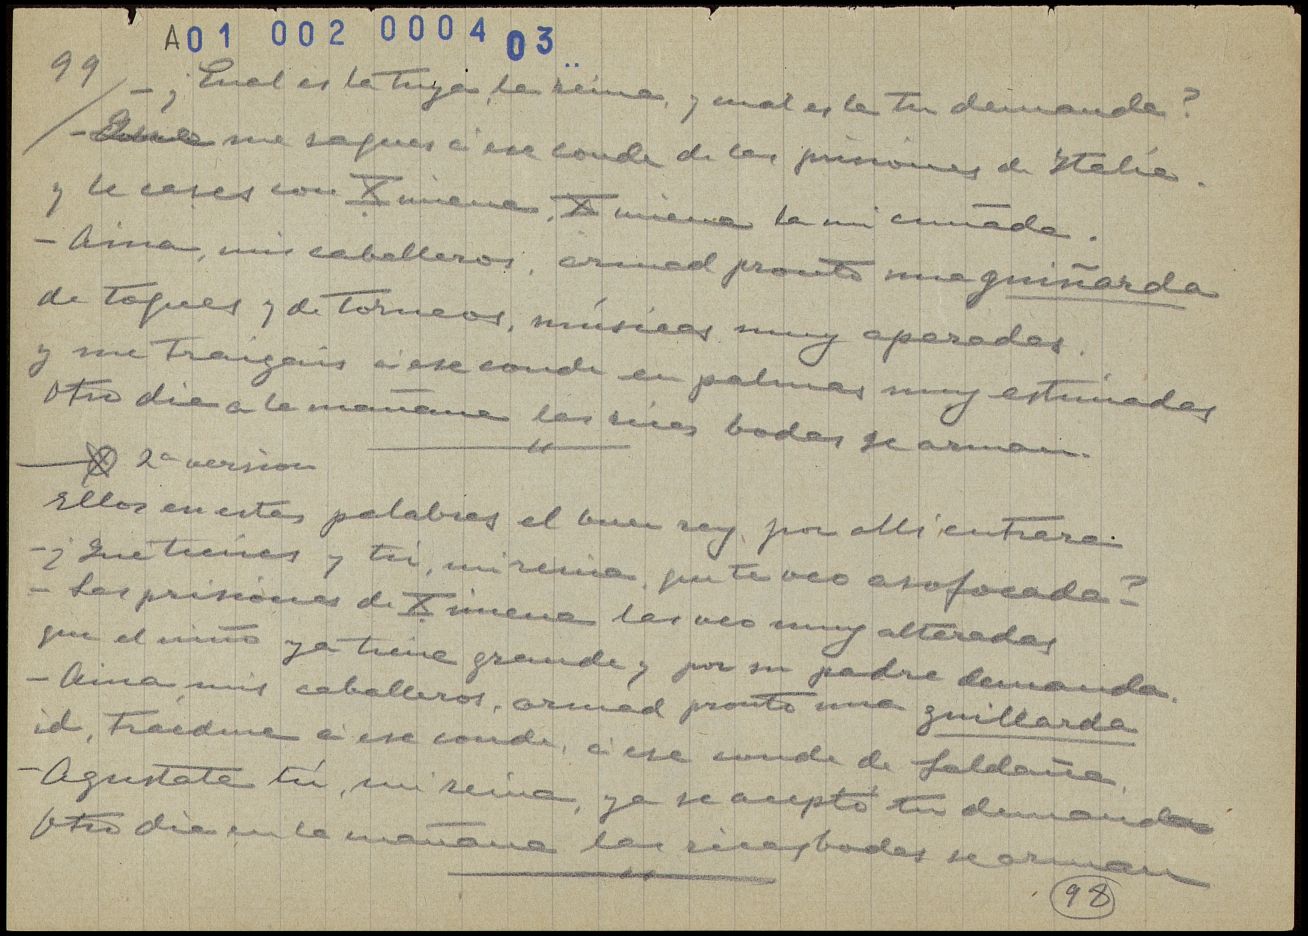 A01 002 0004 03
99
- ¿Cual es la tuya, la reina, y cual es la tu demanda?
- me saques a ese conde de las prisiones de Italia.
y le cases con Ximena, Ximena la mi cuñada.
- Aina, mis caballeros, armad pronto una guiñarda
de toques y de torneos, músicas muy aparadas.
y me traigáis a ese conde en palmas muy estimadas
Otro dia a la mañana las ricas bodas se arman.
"
2ª version
Ellos en estas palabras el buen rey por allí entrara
- ¿Qué tienes y tú, mi reina, que te veo asofocada?
- Las prisiones de Ximena las veo muy alteradas
que el niño ya tiene grande y por su padre demanda.
- Aina, mis caballeros, armad pronto una guillarda
id, traédme a ese conde, a ese conde de Saldaña,
- Agustate tú, mi reina, ya se aceptó tu demanda
Otro dia en la mañana las ricas bodas se arman
"
98